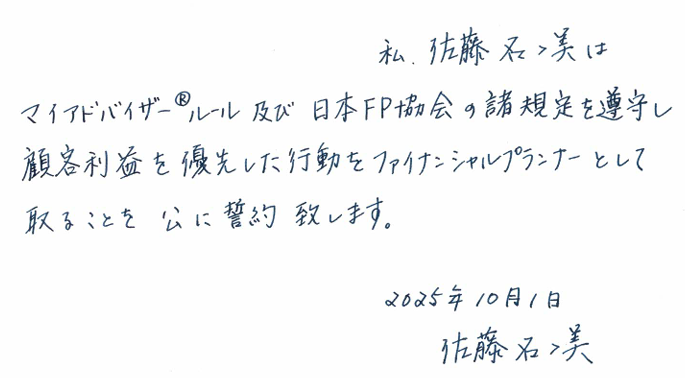 私、佐藤名ゝ美は
マイアドバイザー®ルール及び日本FP協会の諸規定を遵守し
顧客利益を優先した行動をファイナンシャルプランナーとして
取ることを公に誓約致します。
2025年10月1日
佐藤名ゝ美